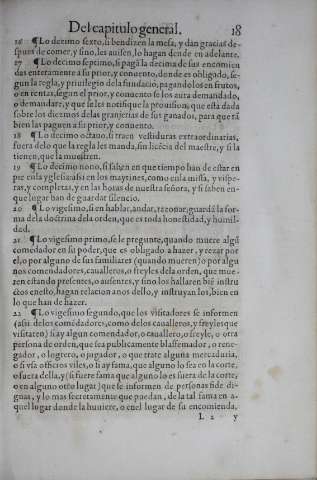 Del capitulo general. 18
16 ¶ Lo decimo sexto, si bendizen la mesa, y dan gracias des-
pues de comer, y sino, les auisen, lo hagan dende en adelante.
17 ¶ Lo decimo septimo, si pagã la decima de sus encomien
das enteramente a su prior, y conuento, donde es obligado, se-
gun la regla, y priuilegio de la fundaciõ, pagandolos en frutos,
o en rentas, segun el prior, y conuento se los aura demandado,
o demandare, y que se les notifique la prouision, que esta dada
sobre los diezmos delas granjerias de sus ganados, para que tã
bien las paguen a su prior, y conuento.
18 ¶ Lo decimo octauo, si traen vestiduras extraordinarias,
fuera delo que la regla les manda, sin licẽcia del maestre, y si la
tienen, que la muestren.
19 ¶ Lo decimo nono, si saben en que tiempo han de estar en
pie en la yglesia assi en los maytines, como en la missa, y vispe-
ras, y completas, y en las horas de nuestra señora, y si saben en-
que lugar han de guardar silencio.
20 ¶ Lo vigesimo, si en hablar, andar, razonar, guardã la for
ma dela doctrina dela orden, que es toda honestidad, y humil-
dad.
21 ¶ Lo vigesimo primo, se le pregunte, quando muere algũ
comendador en su poder, que es obligado a hazer, y rezar por
el, o por alguno de sus familiares (quando mueren) o por algu
nos comendadores, caualleros, o freyles dela orden, que mue-
ren estando presentes, o ausentes, y sino los hallaren biẽ instru
ctos en esto, hagan relacion a nos dello, y instruyan los, bien en
lo que han de hazer.
22 ¶ Lo vigesimo segundo, que los visitadores se informen
(assi delos comẽdadores, como delos caualleros, y freyles que
visitaren) si ay algun comendador, o cauallero, o freyle, o otra
persona de orden, que sea publicamente blasfemador, o rene-
gador, o logrero, o jugador, o que trate alguna mercaduria,
o si vsa officios viles, o si ay fama, que alguno lo sea en la corte,
o fuera della, y (si fuere fama que alguno lo es fuera de la corte,
o en alguno otro lugar) que le informen de personas fide di-
gnas, y lo mas secretamente que puedan, de la tal fama en a-
quel lugar donde la huuiere, o en el lugar de su encomienda,
L 2 y